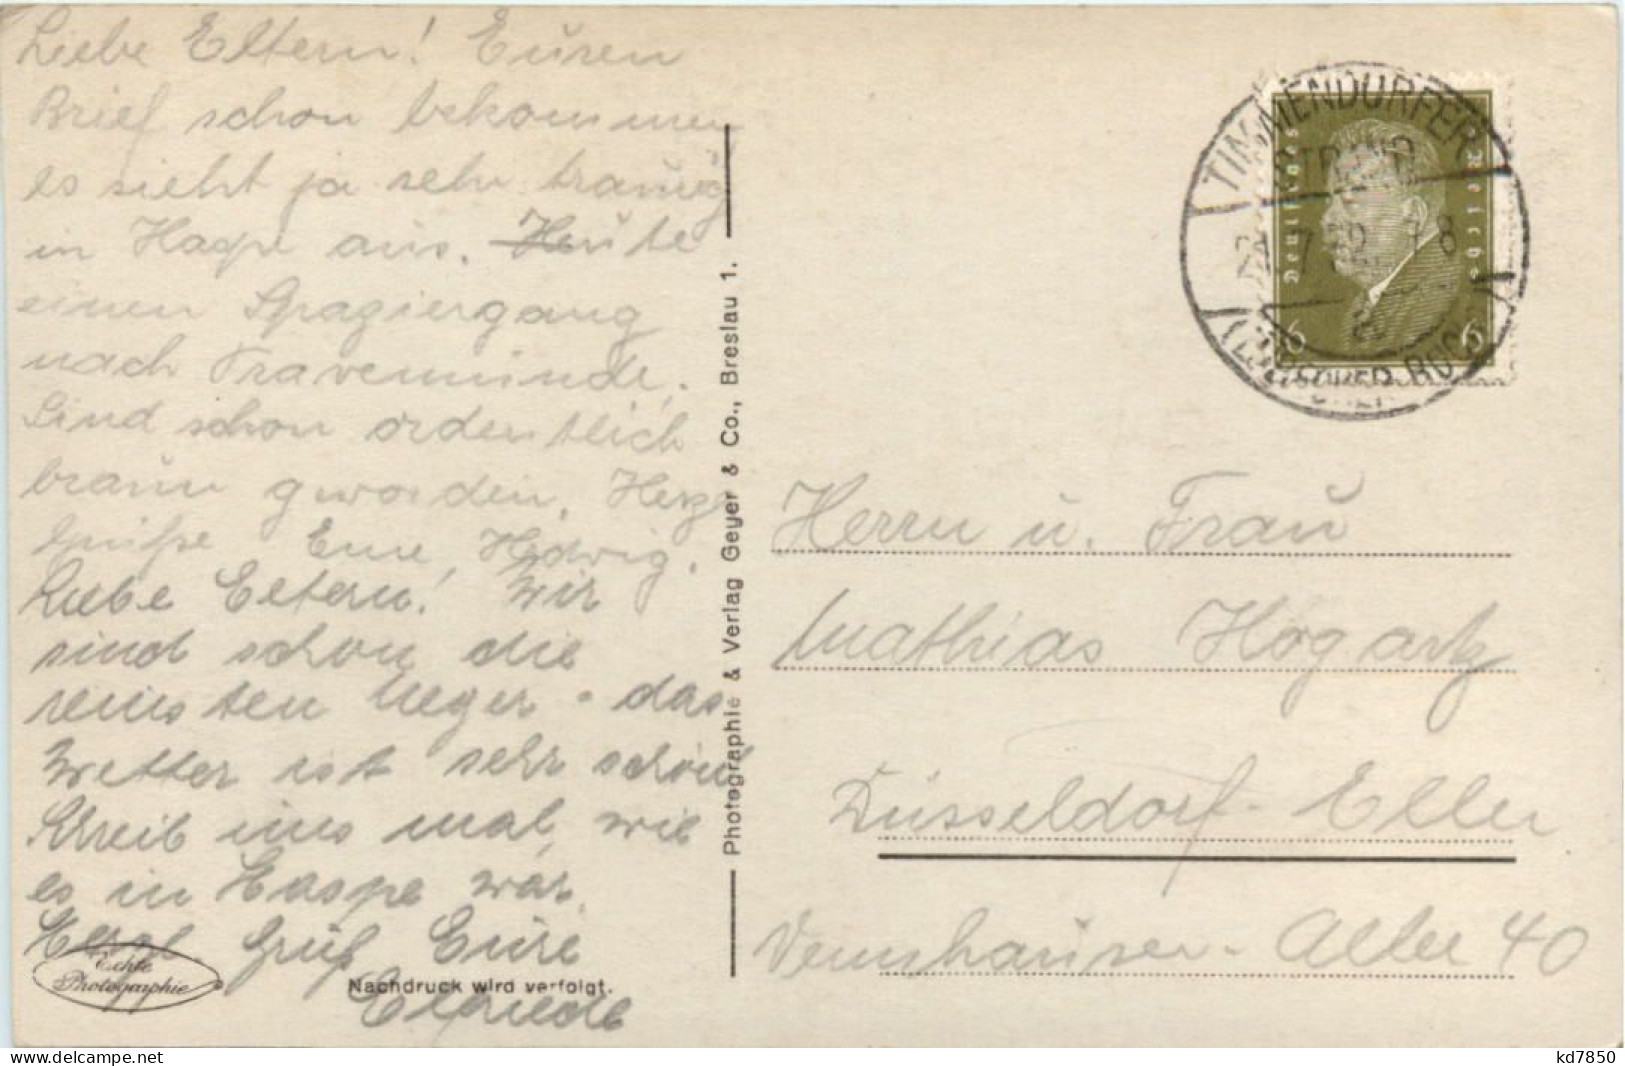 Liebe Eltern! Euren
Brief schon bekommen
es sieht ja sehr traurig
in Haspe aus. Heute
einen Spaziergang
nach Travemünde.
Sind schon ordentlich
braun geworden. Herzl.
Grüße Eure Hedwig.
Liebe Eltern! Wir
sind schon die
reinsten Neger - das
Wetter ist sehr schön
Schreib uns mal, wie
es in Haspe war.
Herzl. Gruß Eure
Elfriede
Echte
Photographie
Nachdruck wird verfolgt.
Photographie & Verlag Geyer & Co., Breslau 1.
TIMMENDORFER
STRAND
Deutsches Reich
6 6
Herrn u. Frau
Mathias Hogartz
Düsseldorf-Eller
Vennhauser-Allee 40
delcampe.net
kd7850